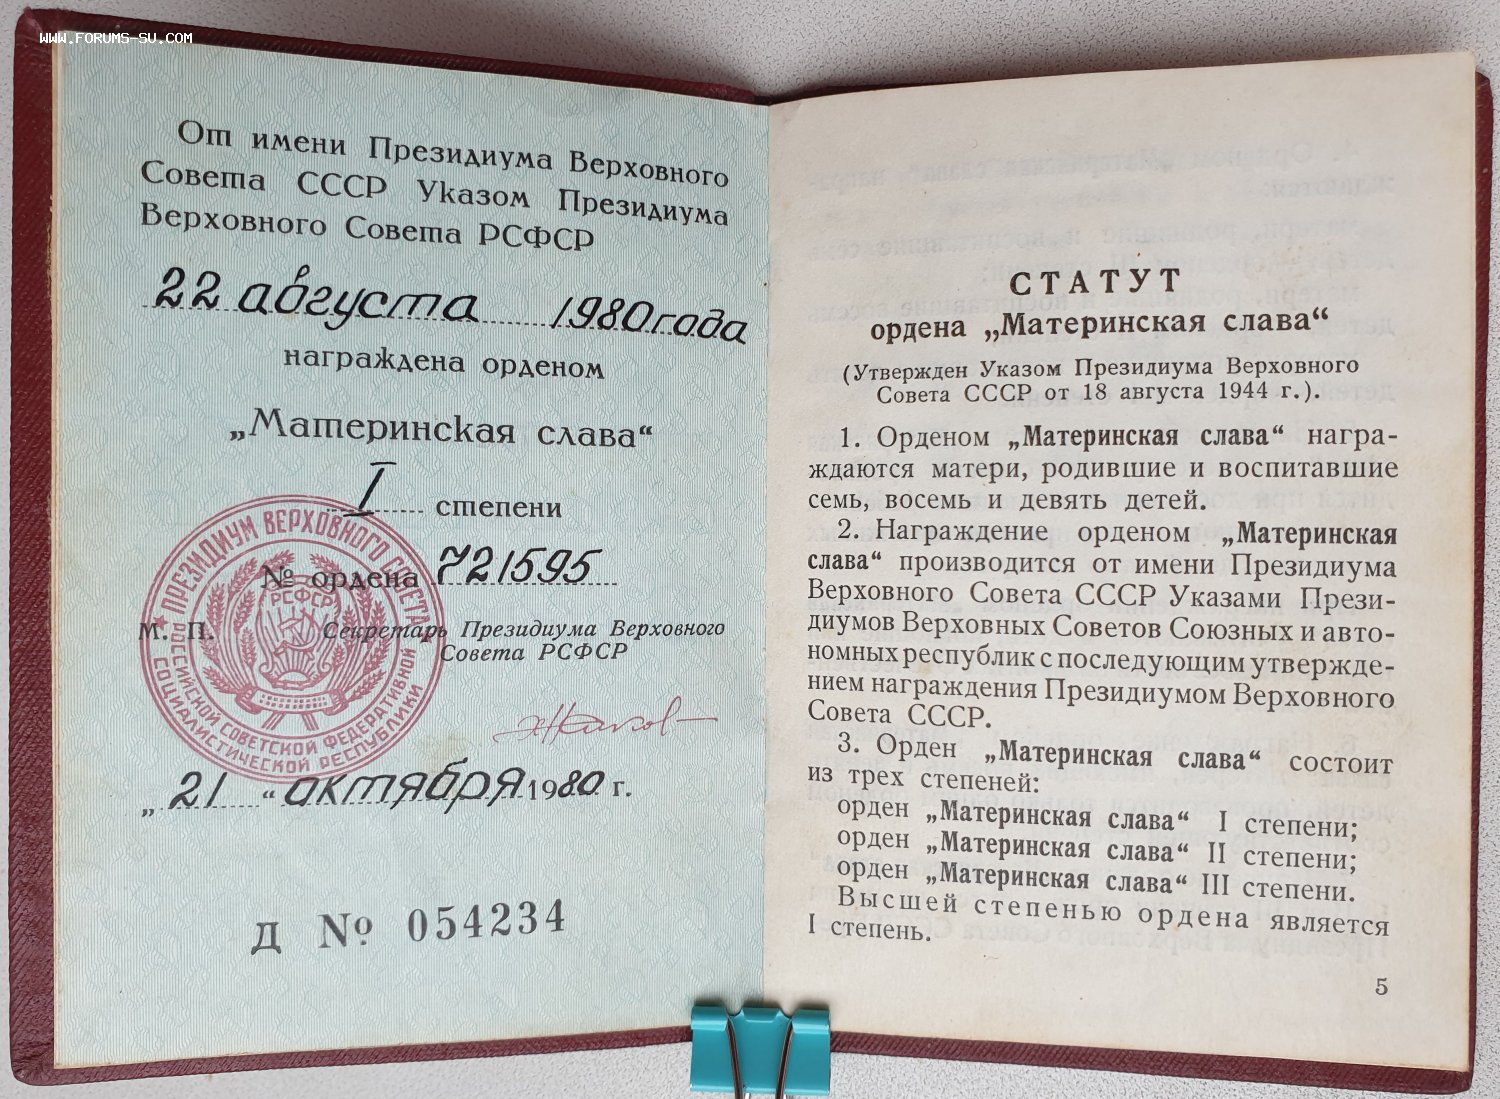 WWW.FORUMS-SU.COM
От имени Президиума Верховного
Совета СССР Указом Президиума
Верховного Совета РСФСР
22 августа 1980 года
награждена орденом
„Материнская слава“
I степени
№ ордена 721595
М. П. Секретарь Президиума Верховного
Совета РСФСР
ПРЕЗИДИУМ ВЕРХОВНОГО СОВЕТА
РОССИЙСКОЙ СОВЕТСКОЙ ФЕДЕРАТИВНОЙ
СОЦИАЛИСТИЧЕСКОЙ РЕСПУБЛИКИ
РСФСР
„21“ октября 1980 г.
Д № 054234
СТАТУТ
ордена „Материнская слава“
(Утвержден Указом Президиума Верховного
Совета СССР от 18 августа 1944 г.).
1. Орденом „Материнская слава“ награ-
ждаются матери, родившие и воспитавшие
семь, восемь и девять детей.
2. Награждение орденом „Материнская
слава“ производится от имени Президиума
Верховного Совета СССР Указами Прези-
диумов Верховных Советов Союзных и авто-
номных республик с последующим утвержде-
нием награждения Президиумом Верховного
Совета СССР.
3. Орден „Материнская слава“ состоит
из трех степеней:
орден „Материнская слава“ I степени;
орден „Материнская слава“ II степени;
орден „Материнская слава“ III степени.
Высшей степенью ордена является
I степень.
5